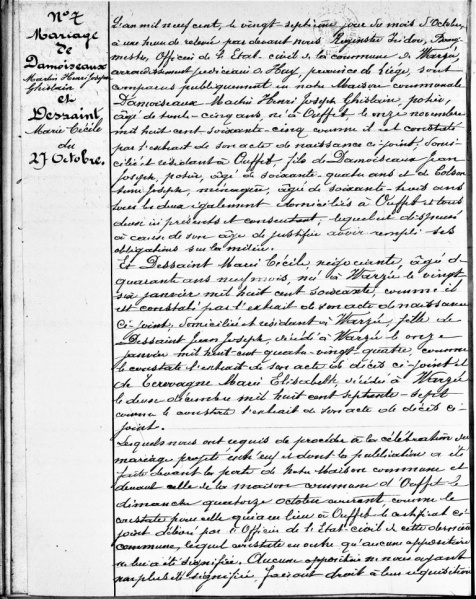 N° 7
Mariage
de
Damoiseaux
Martin Henri Joseph
Ghislain
et
Dessaint
Marie Cécile
du
27 Octobre.
L'an mil neuf cent, le vingt septième jour du mois d'Octobre,
à une heure de relevée par devant nous Isidore, Bourg-
mestre, Officier de l'Etat civil de la commune de Warzée,
arrondissement judiciaire de Huy, province de Liége, sont
comparus publiquement en notre Maison communale
Damoiseaux Martin Henri Joseph Ghislain, potier,
âgé de trente-cinq ans, né à Ouffet le onze novembre
mil huit cent soixante-cinq comme il est constaté
par l'extrait de son acte de naissance ci-joint, domi-
cilié et résidant à Ouffet, fils de Damoiseaux Jean
Joseph, potier, âgé de soixante-quatre ans et de Colson
Joseph, ménagère, âgée de soixante-huit ans
tous les deux également domiciliés à Ouffet et tous
deux ici présents et consentant, lequel est dispensé
à cause de son âge de justifier avoir rempli ses
obligations sur la milice.
Et Dessaint Marie Cécile négociante, âgée de
quarante ans neuf mois, née à Warzée le vingt-
six janvier mil huit cent soixante, comme il
est constaté par l'extrait de son acte de naissance
ci-joint, domiciliée et résidant à Warzée, fille de
Dessaint Jean Joseph, décédé à Warzée le onze
janvier mil huit cent quatre-vingt-quatre, comme
le constate l'extrait de son acte de décès ci-joint et
de Tervagne Marie Elisabeth, décédée à Warzée
le deux décembre mil huit cent septante-sept
comme le constate l'extrait de son acte de décès ci-
joint.
Lesquels nous ont requis de procéder à la célébration du
mariage projeté entr'eux et dont la publication a été
faite devant la porte de Notre Maison commune et
devant celle de la maison commune d'Ouffet le
dimanche quatorze octobre courant comme le
constate pour celle qui a eu lieu à Ouffet le certificat ci-
joint délivré par l'Officier de l'Etat-civil de cette dernière
commune, lequel constate en outre qu'aucune opposition
ne lui a été signifiée. Aucune opposition ne nous ayant
non plus été signifiée, faisant droit à leur réquisition